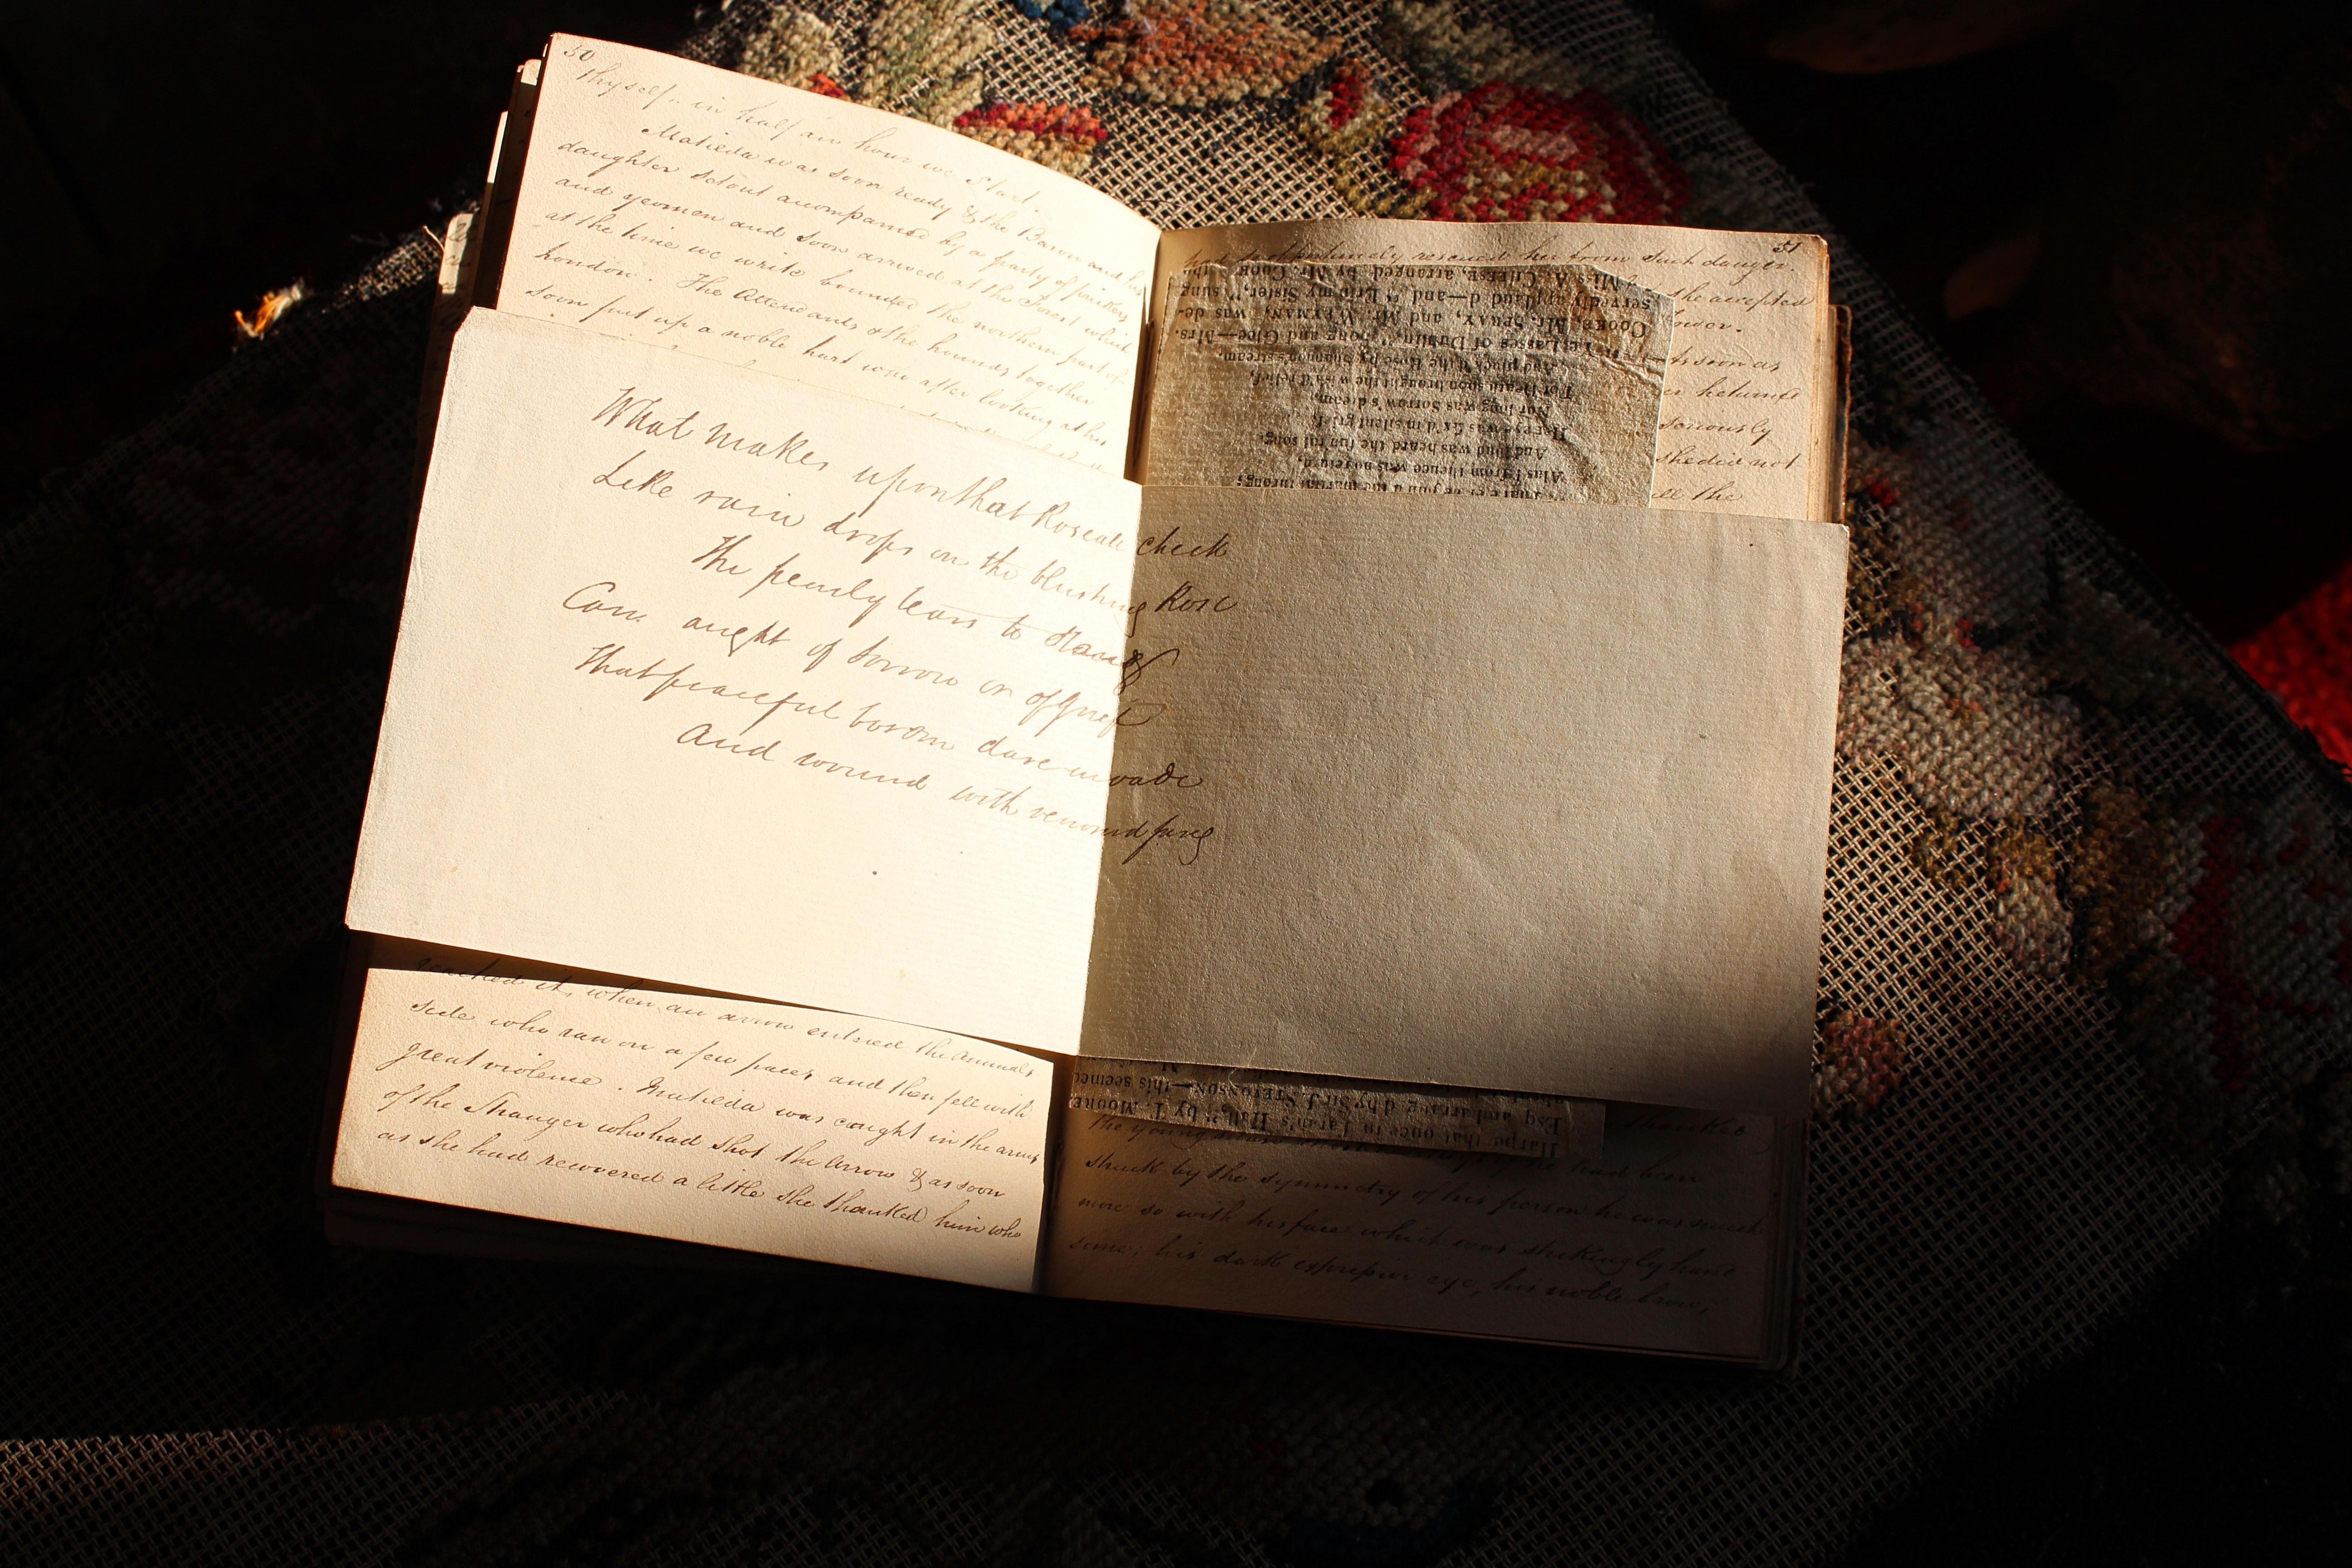 50
thyself. in half an hour we start.
Matilda was soon ready & the Baron and his
daughter setout accompanied by a party of prickers
and yeomen and soon arrived at the Forest which
at the time we write bounded the northern part of
London. The Attendants & the hounds together
soon put up a noble hart who after looking at his
What makes upon that Roseate cheek
Like rain drops on the blushing Rose
The pearly tears to
Can aught of sorrow or of grief
That peaceful bosom dare invade
And wound with venomd fang
reached it, when an arrow entered the animals
side who ran on a few paces and then fell with
great violence. Matilda was caught in the arms
of the Stranger who had shot the arrow & as soon
as she had recovered a little she thanked him who
51
rescued her from such danger.
she accepted
As soon as
returned
seriously
she did not
the
Mrs. A. CHEESE, arranged by Mr. COOK
servedly applaud'd—and "Erin my Sister," sung
COOKE, Mr. SPRAY, and Mr. WEYMAN, was de-
Lasses of Dublin." Song and Glee—Mrs.
And pluck'd the Rose by Shannon's stream.
For Death soon brought the wish'd relief,
Nor long was Sorrow's dream,
Her eye was fix'd in silent grief,
And loud was heard the fun'ral song,
Alas! from thence was no return,
Harpe that once in Tara's Halls" by T. MOORE
Esq and arrang'd by Sir J. STEVENSON—this seemed
thanked
the young
been
struck by the symmetry of his person he was much
more so with his face which was strikingly hand
some; his dark expressive eye, his noble brow,